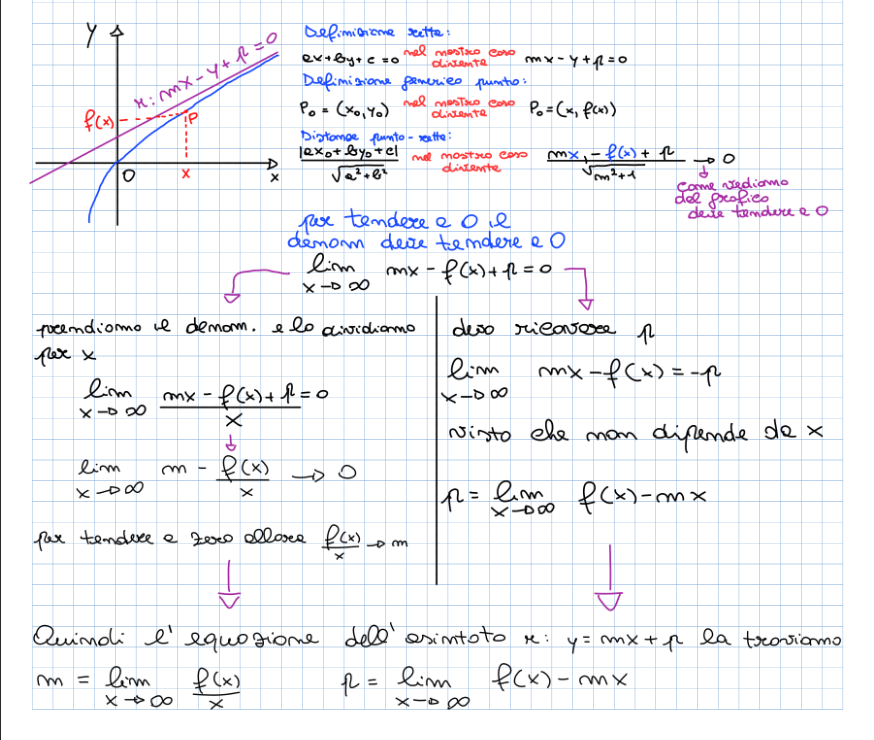 y
r: mx - y + p = 0
f(x)
P
O
x
x
Definizione retta:
ax+by+c=0 nel nostro caso diventa mx-y+p=0
Definizione generico punto:
P₀ = (x₀,y₀) nel nostro caso diventa P₀=(x, f(x))
Distanza punto-retta:
|ax₀+by₀+c| / √a²+b² nel nostro caso diventa mx - f(x) + p / √m²+1 → 0
come vediamo
dal grafico
deve tendere a 0
per tendere a 0 il
denom deve tendere a 0
lim x→∞ mx - f(x)+p = 0
prendiamo il denom. e lo dividiamo
per x
lim x→∞ mx - f(x)+p / x = 0
lim x→∞ m - f(x)/x → 0
per tendere a zero allora f(x)/x → m
devo ricavare p
lim x→∞ mx-f(x) = -p
visto che non dipende da x
p = lim x→∞ f(x)-mx
Quindi l'equazione dell'asintoto r: y=mx+p la troviamo
m = lim x→∞ f(x)/x p = lim x→∞ f(x)-mx